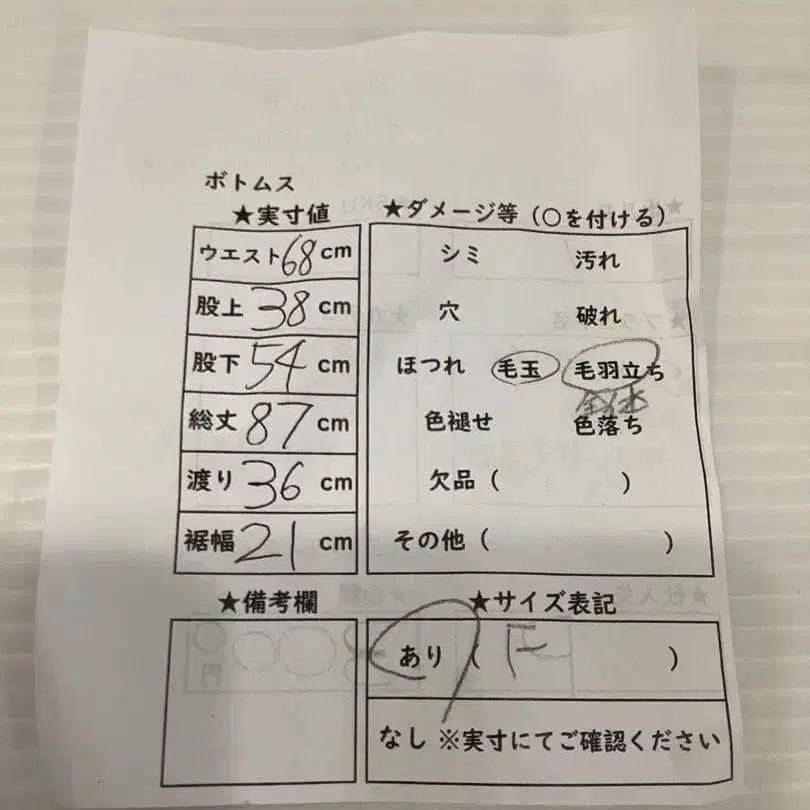 ボトムス
★実寸値
ウエスト 68 cm
股上 38 cm
股下 54 cm
総丈 87 cm
渡り 36 cm
裾幅 21 cm
★ダメージ等（〇を付ける）
シミ 汚れ
穴 破れ
ほつれ 毛玉 毛羽立ち
全体
色褪せ 色落ち
欠品（ ）
その他（ ）
★備考欄
★サイズ表記
あり（ F ）
なし ※実寸にてご確認ください